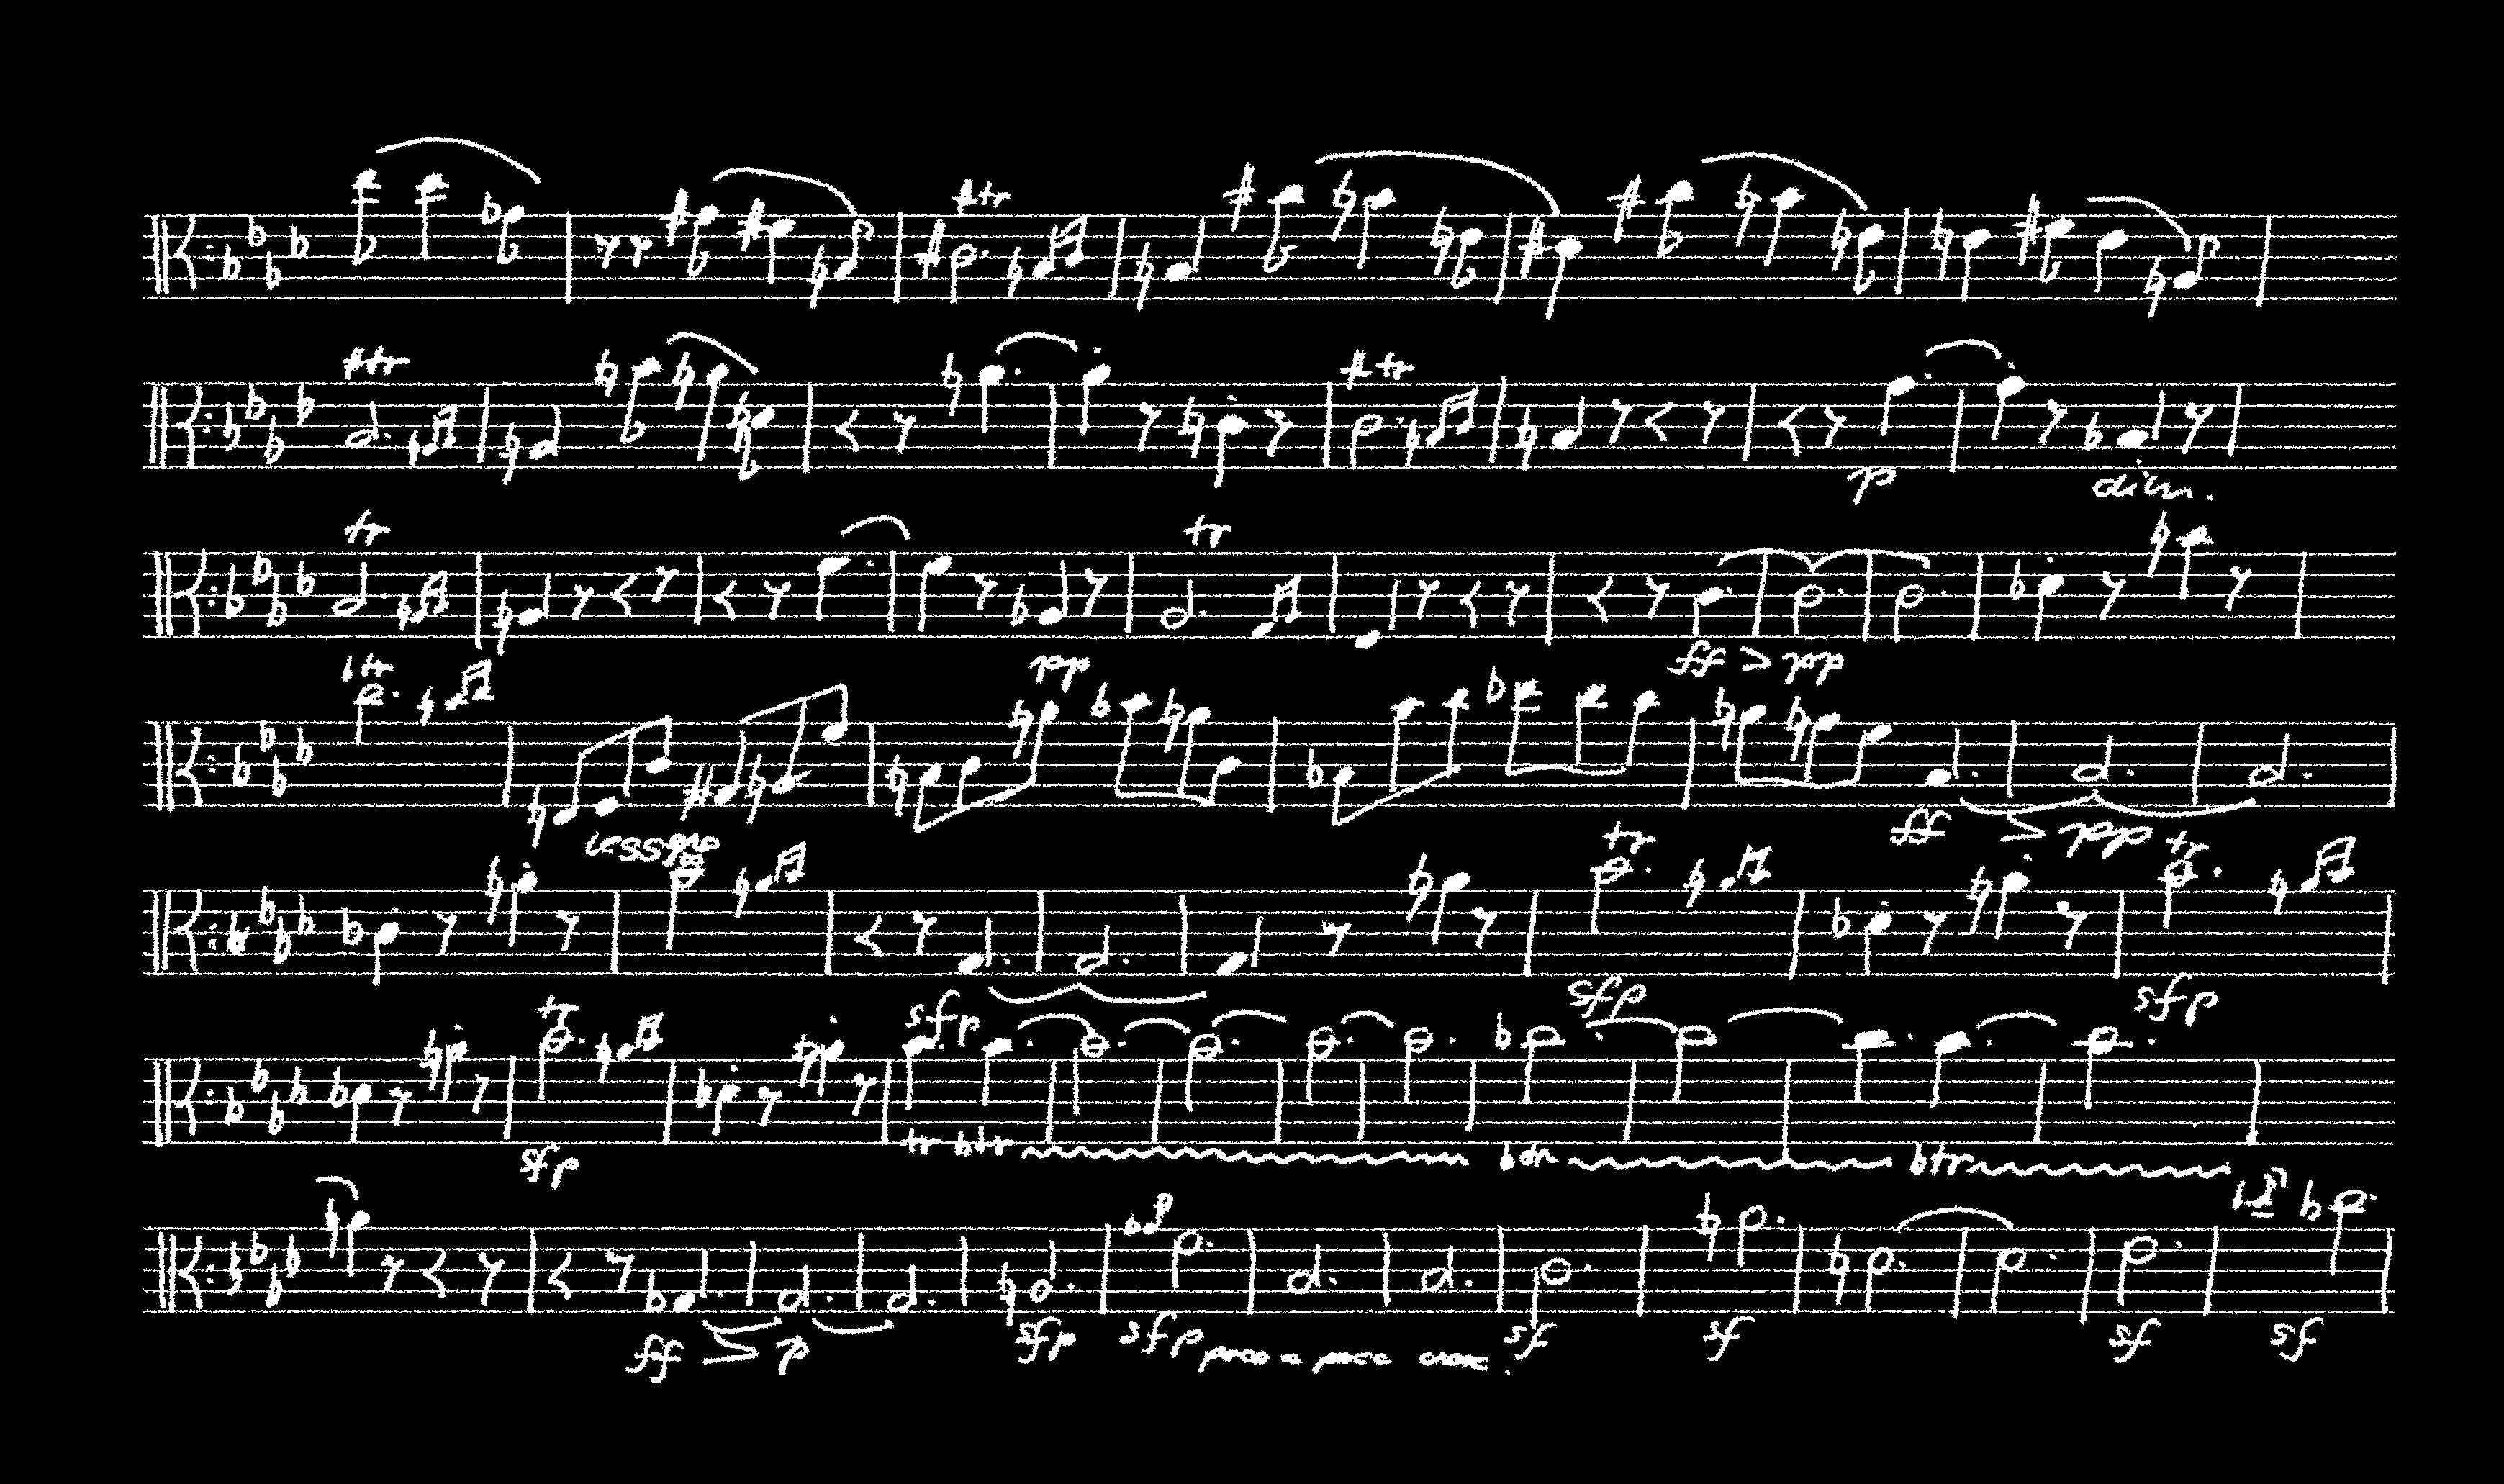 tr
tr
tr
p
dim.
tr
tr
ff > pp
tr
pp
leggero
ff > ppp
tr
tr
sfp
sfp
tr
sfp
sfp
tr btr
btr
btr
ff > p
sfp
sfp
poco a poco cresc.
sf
sf
sf
sf